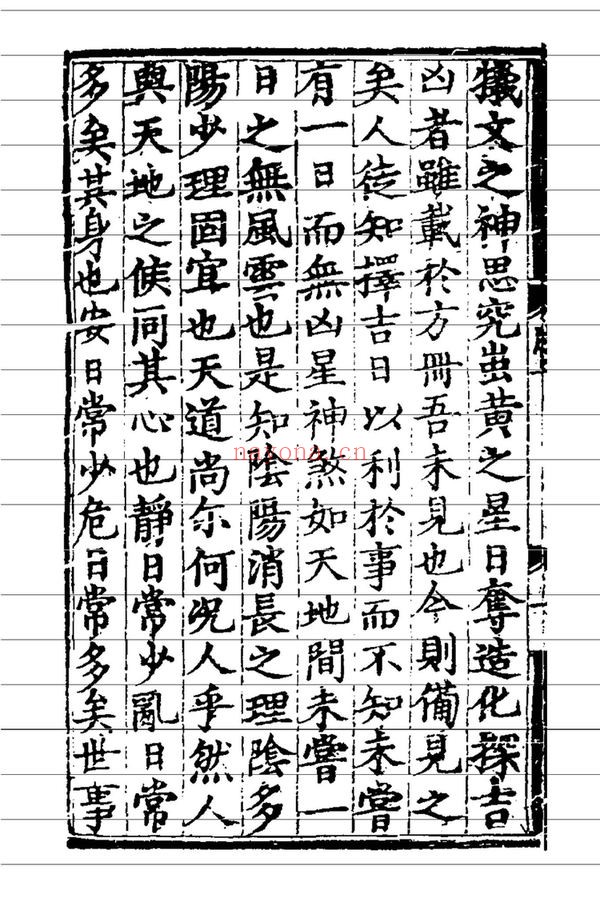 犧文之神思究蚩黄之星日奪造化探吉
凶者雖載於方冊吾未見也今則備見之
矣人徒知擇吉日以利於事而不知未嘗
有一日而無凶星神煞如天地間未嘗一
日之無風雲也是知陰陽消長之理陰多
陽少理固宜也天道尚尒何况人乎然人
與天地之候同其心也靜日常少亂日常
多矣其身也安日常少危日常多矣世事
nayona.cn